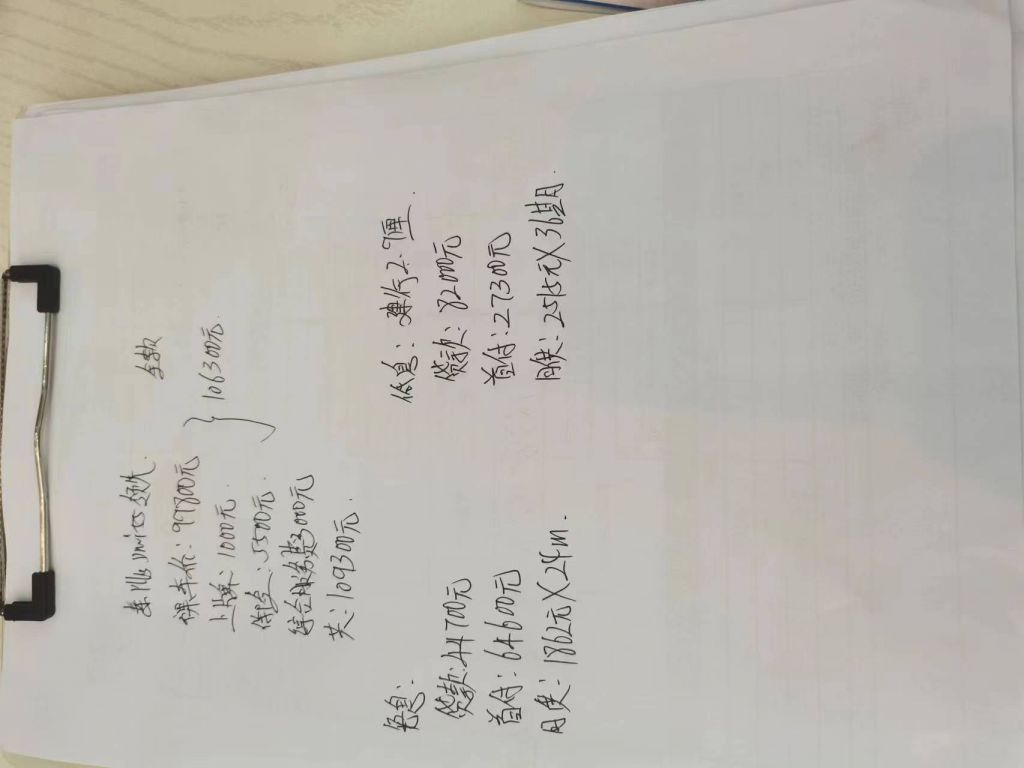 长川UNI-T5领先
全款
裸车价:99800元
上牌:1000元.
保险:5500元.
} 106300元.
综合服务费3000元
共:109300元.
免息:
贷款:44700元
首付:64600元
月供:1862元X24m.
低息:建行2.9厘.
贷款:82000元
首付:27300元
月供:2515元X36期.